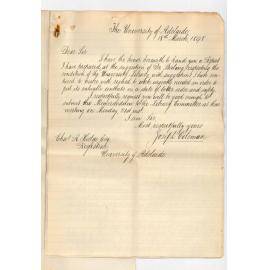 The University of Adelaide
18th March 1898
Dear Sir
I have the honor herewith to hand you a Report
I have prepared at the suggestion of Dr. Stirling respecting the
condition of the University Library and suggestions I have ventured
to make with regard to what is urgently needed in order to
put its valuable contents in a state of better order and safety.
I respectfully request you will be good enough to
submit the Report to the Library Committee at their
meeting on Monday 21st inst.
I am Sir
Most respectfully yours
Joseph Coleman
Chas. R. Hodge Esq
Registrar
University of Adelaide